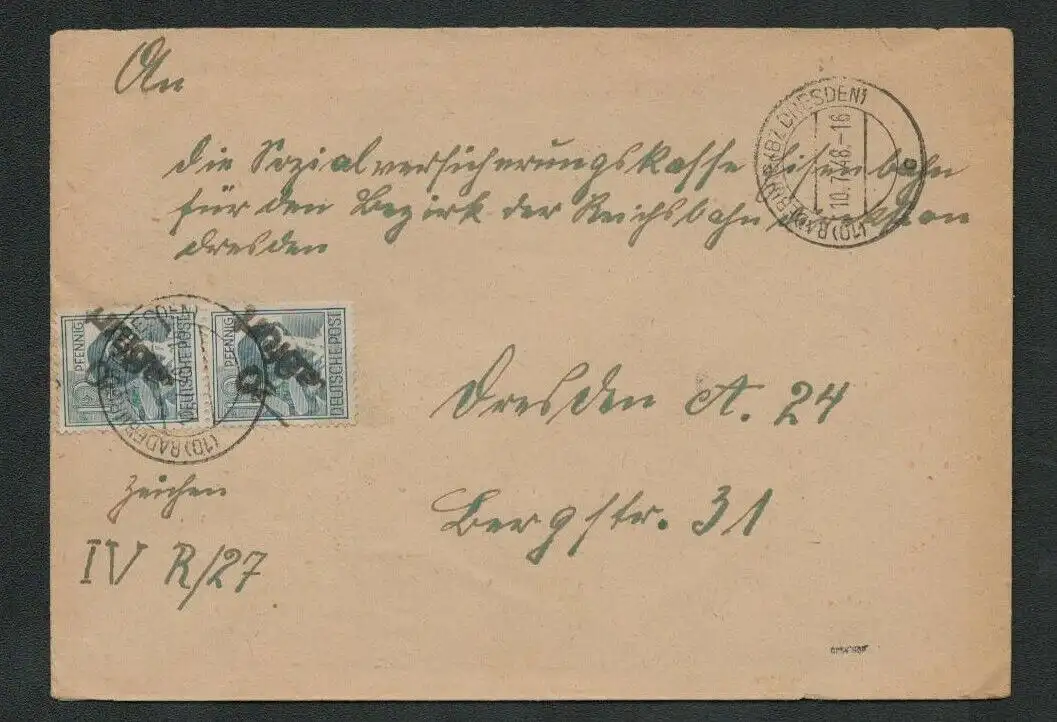 An
die Sozialversicherungskasse Eisenbahn
für den Bezirk der Reichsbahndirektion
Dresden
(10) RADEBURG (BZ DRESDEN)
10.7.48.-16
c
PFENNIG
DEUTSCHE POST
12 PFENNIG
DEUTSCHE POST
(10) RADEBURG
Dresden A. 24
Bergstr. 31
Zeichen
IV R/27